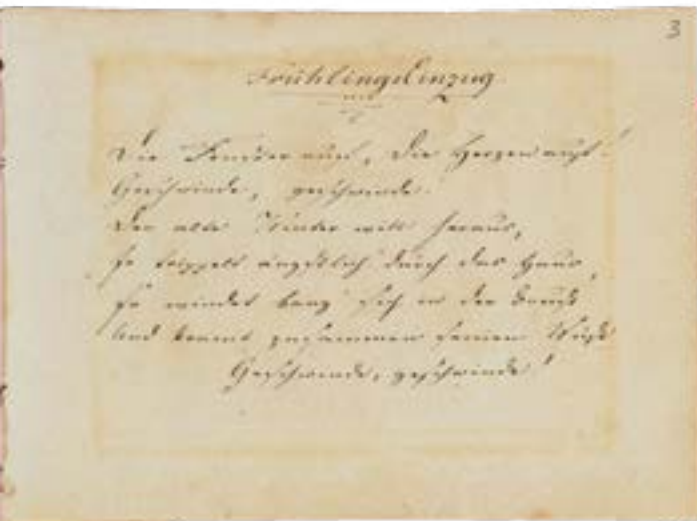 3
Frühlings Einzug
Die Fenster auf, die Herzen auf!
Geschwinde, geschwinde!
Der alte Winter will heraus,
Er trippelt ängstlich durch das Haus,
Er windet bang sich in der Brust
Und kramt zusammen seinen Wust
Geschwinde, geschwinde!